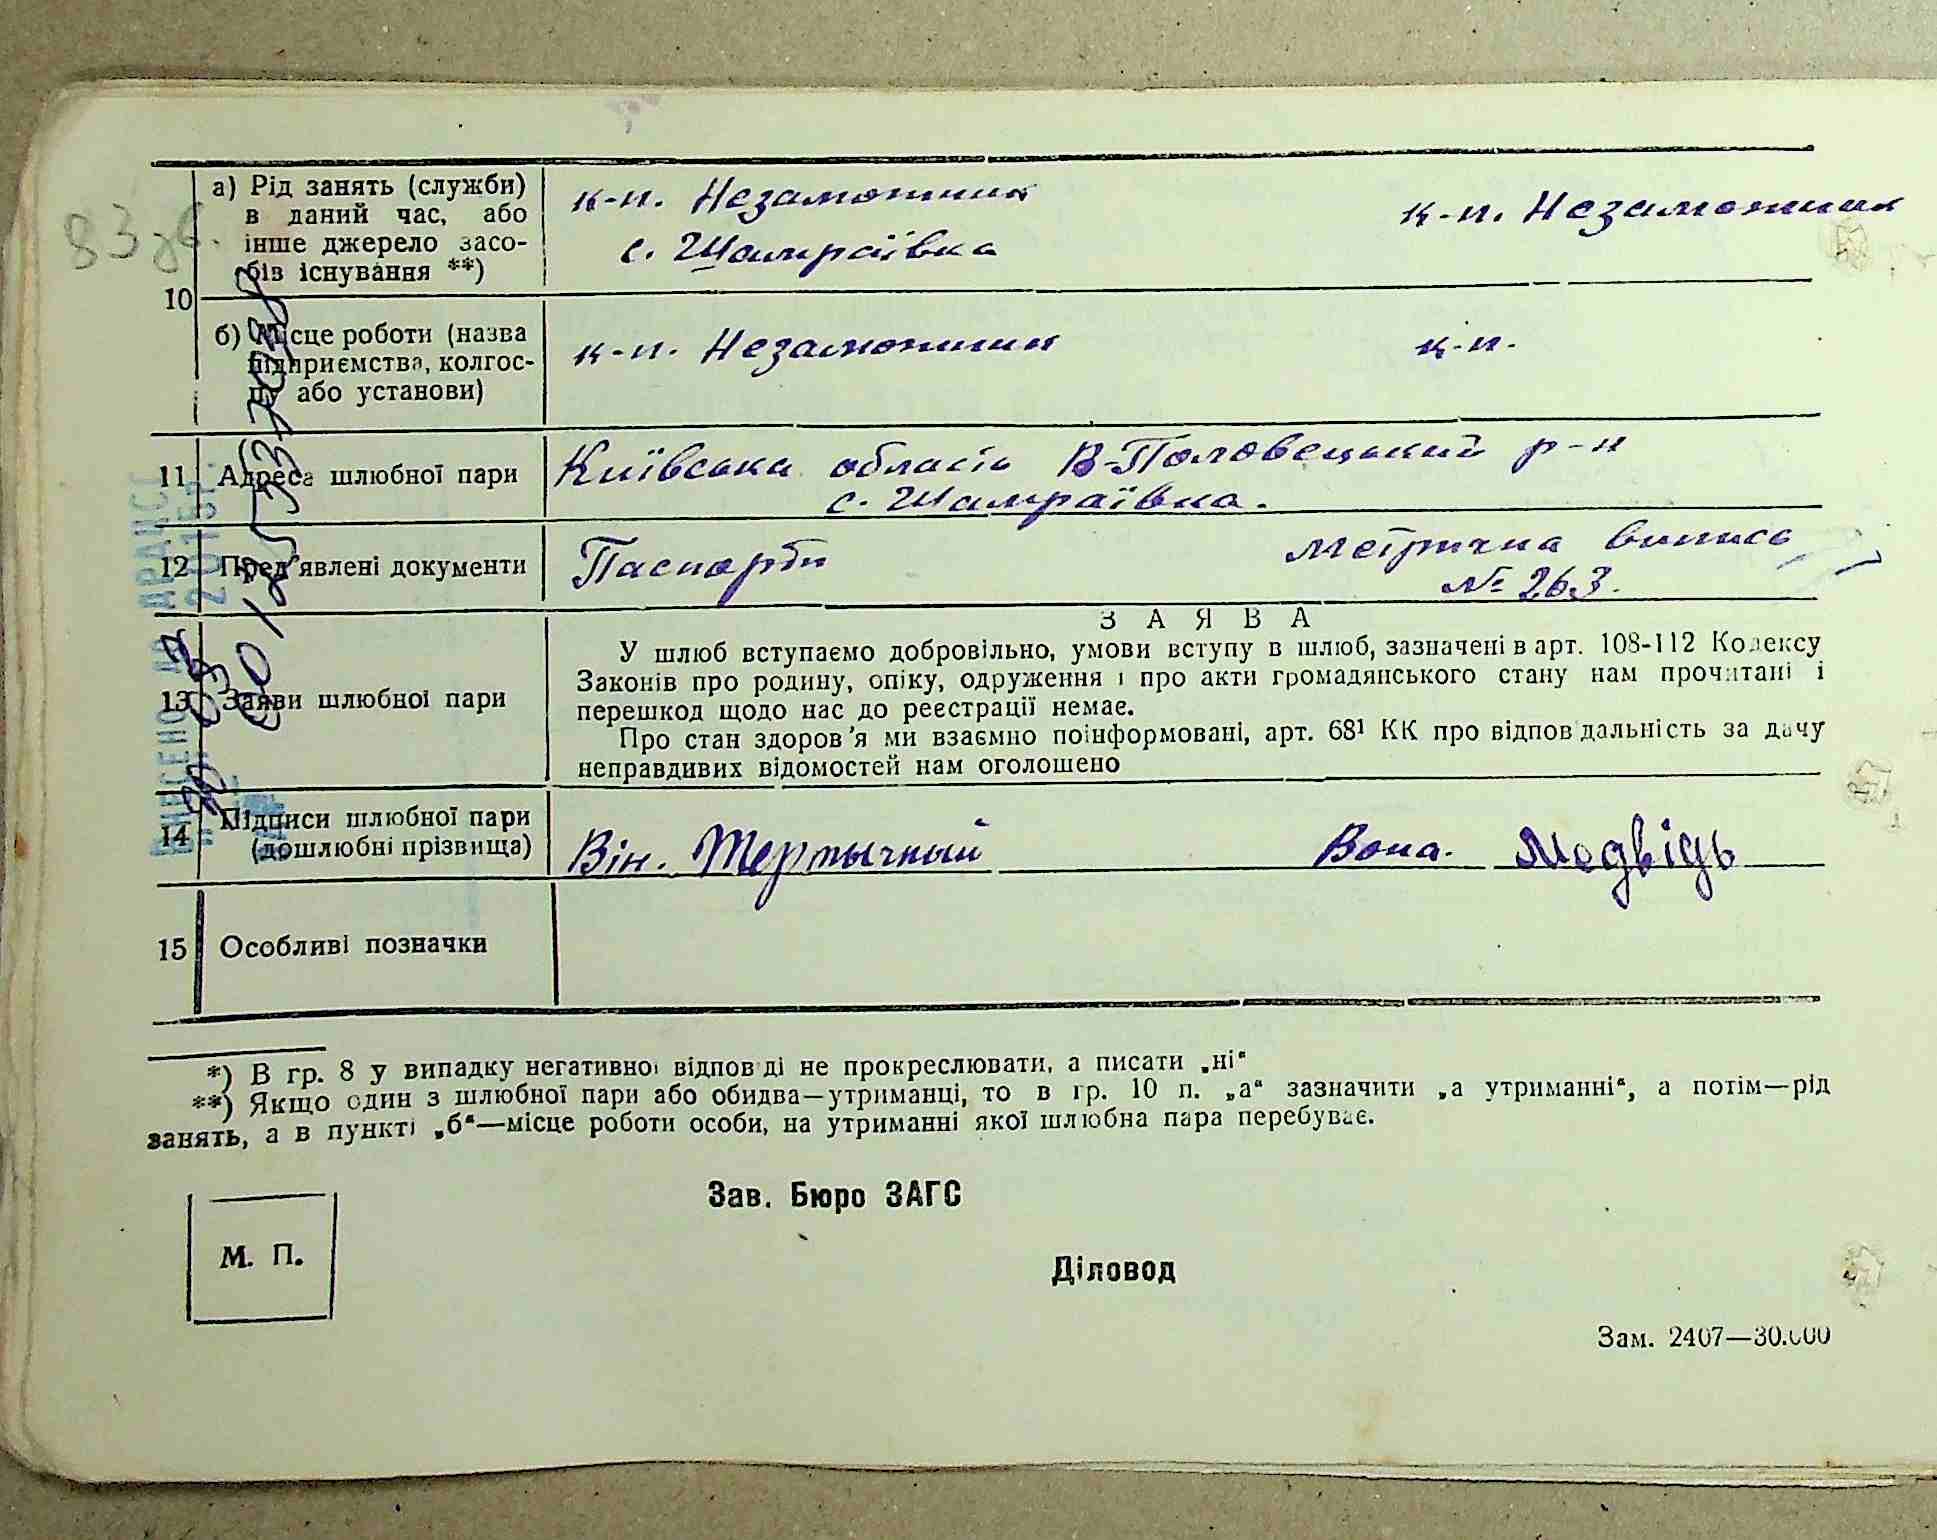 83 зв.
а) Рід занять (служби)
в даний час, або
інше джерело засо-
бів існування **)
к-п. Незаможник
с. Шамраївка
к-п. Незаможник
10
б) Місце роботи (назва
підприємства, колгос-
пу або установи)
к-п. Незаможник
к-п.
11 Адреса шлюбної пари
Київська область В-Половецький р-н
с. Шамраївка.
12 Пред'явлені документи
Паспорти
метрична випись
№ 263.
13 Заяви шлюбної пари
ЗАЯВА
У шлюб вступаємо добровільно, умови вступу в шлюб, зазначені в арт. 108-112 Кодексу
Законів про родину, опіку, одруження і про акти громадянського стану нам прочитані і
перешкод щодо нас до реєстрації немає.
Про стан здоров'я ми взаємно поінформовані, арт. 68¹ КК про відповідальність за дачу
неправдивих відомостей нам оголошено
14 Підписи шлюбної пари
(дошлюбні прізвища)
Він. Тертычный
Вона. Медвідь
15 Особливі позначки
*) В гр. 8 у випадку негативної відповіді не прокреслювати, а писати „ні“
**) Якщо один з шлюбної пари або обидва—утриманці, то в гр. 10 п. „а“ зазначити „а утриманні“, а потім—рід
занять, а в пункті „б“—місце роботи особи, на утриманні якої шлюбна пара перебуває.
Зав. Бюро ЗАГС
М. П.
Діловод
Зам. 2407—30.000